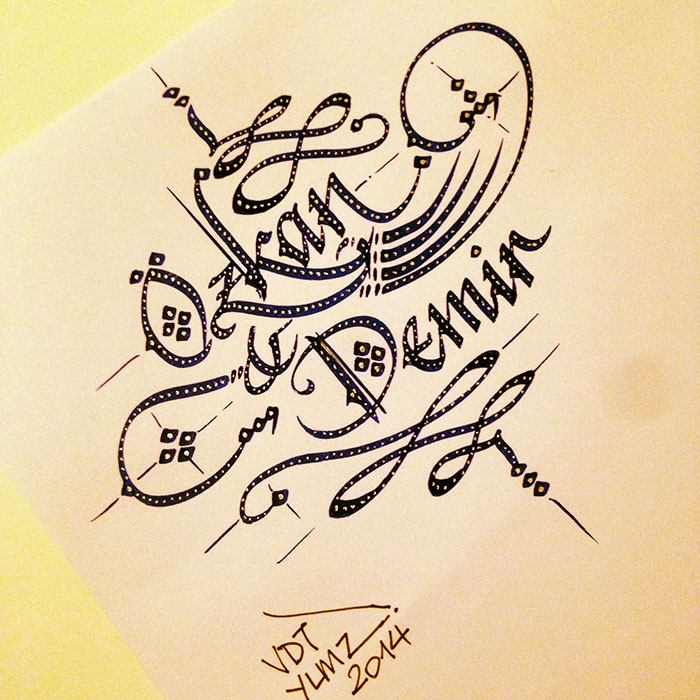 Özkan
Demir
VDT
YLMZ
2014